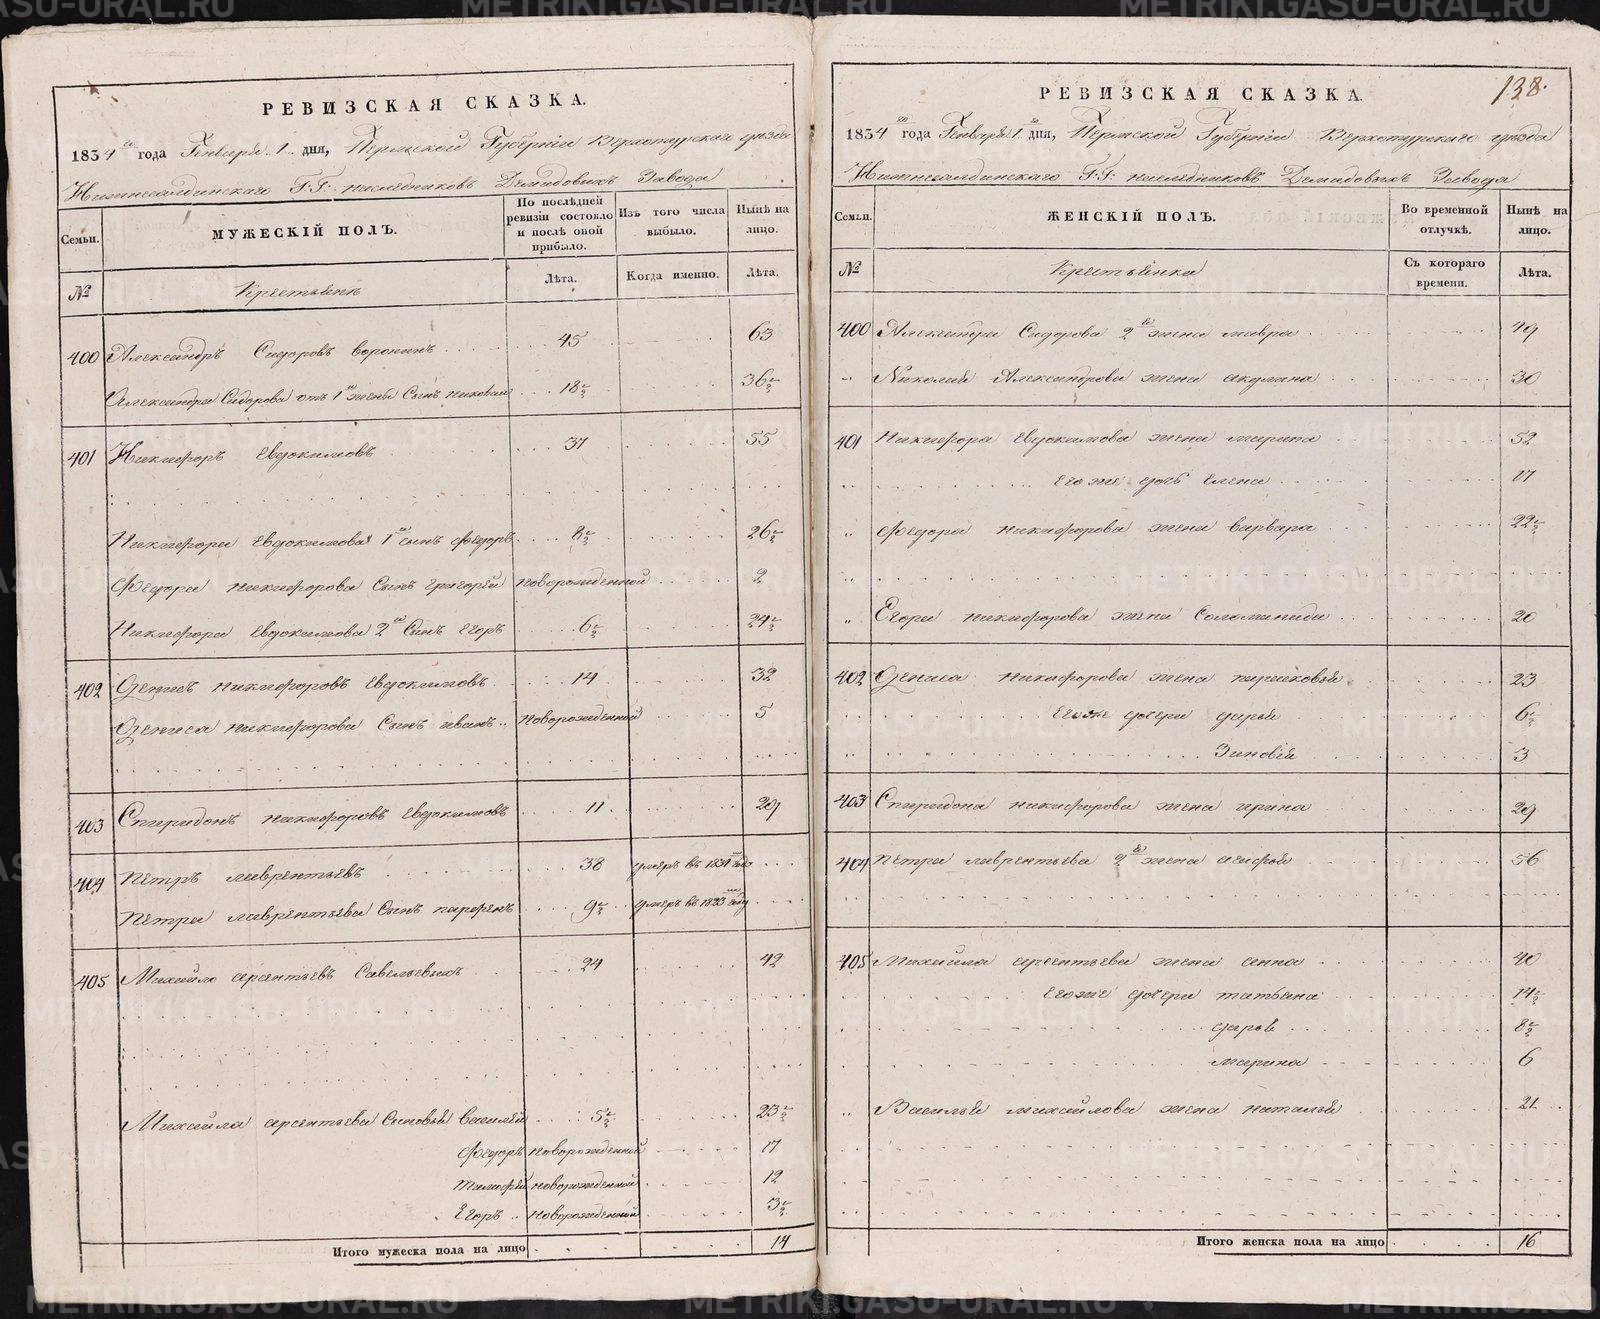 РЕВИЗСКАЯ СКАЗКА.
1834 го года Генваря 1 дня, Пермской Губернiи Верхотурскаго уезда
Нижнесалдинскаго Г.Г. наследниковъ Демидовыхъ Завода
Семьи.
МУЖЕСКIЙ ПОЛЪ.
По послѣдней ревизiи состояло и послѣ оной прибыло.
Изъ того числа выбыло.
Нынѣ на лицо.
№
Крестьянъ
Лѣта.
Когда именно.
Лѣта.
400 Александръ Сидоровъ воронинъ 45 63
Александра Сидорова отъ 1й жены Сынъ николай 18½ 36½
401 Никифоръ Евдокимовъ 37 55
Никифора Евдокимова 1й сынъ федоръ 8½ 26½
Федора никифорова Сынъ григорей новорожденной 2
Никифора Евдокимова 2й Сынъ Егоръ 6½ 24½
402 Денисъ никифоровъ Евдокимовъ 14 32
Дениса никифорова Сынъ иванъ новорожденной 5
403 Спиридонъ никифоровъ Евдокимовъ 11 29
404 Петръ лаврентьевъ 38 умеръ въ 1831 м году
Петра лаврентьева Сынъ парфенъ 9½ умеръ въ 1823 м году
405 Михайло арсентьевъ Савельевыхъ 24 42
Михайла арсентьева Сыновья василей 5½ 23½
Федоръ новорожденной 17
тимофей новорожденной 12
Егоръ новорожденной 3½
Итого мужеска пола на лицо 14
138.
РЕВИЗСКАЯ СКАЗКА.
1834 го года Генваря 1 го дня, Пермской Губернiи Верхотурскаго уезда
Нижнесалдинскаго Г.Г. наследниковъ Демидовыхъ Завода
Семьи.
ЖЕНСКIЙ ПОЛЪ.
Во временной отлучкѣ.
Нынѣ на лицо.
№
Крестьянка
Съ котораго времени.
Лѣта.
400 Александра Сидорова 2я жена мавра 49
" Николая Александрова жена акулина 30
401 Никифора Евдокимова жена марина 52
Его же дочь Елена 17
" Федора никифорова жена варвара 22½
" Егора никифорова жена Соломинида 20
402 Дениса никифорова жена 23
Его же дочери дарья 6½
Зиновiя 3
403 Спиридона никифорова жена ирина 29
404 Петра лаврентьева 2я жена агафья 56
405 Михайла арсентьева жена анна 40
Его же дочери татьяна 14½
дарья 8½
марина 6
" Василья михайлова жена наталья 21
Итого женска пола на лицо 16
METRIKI.GASO-URAL.RU